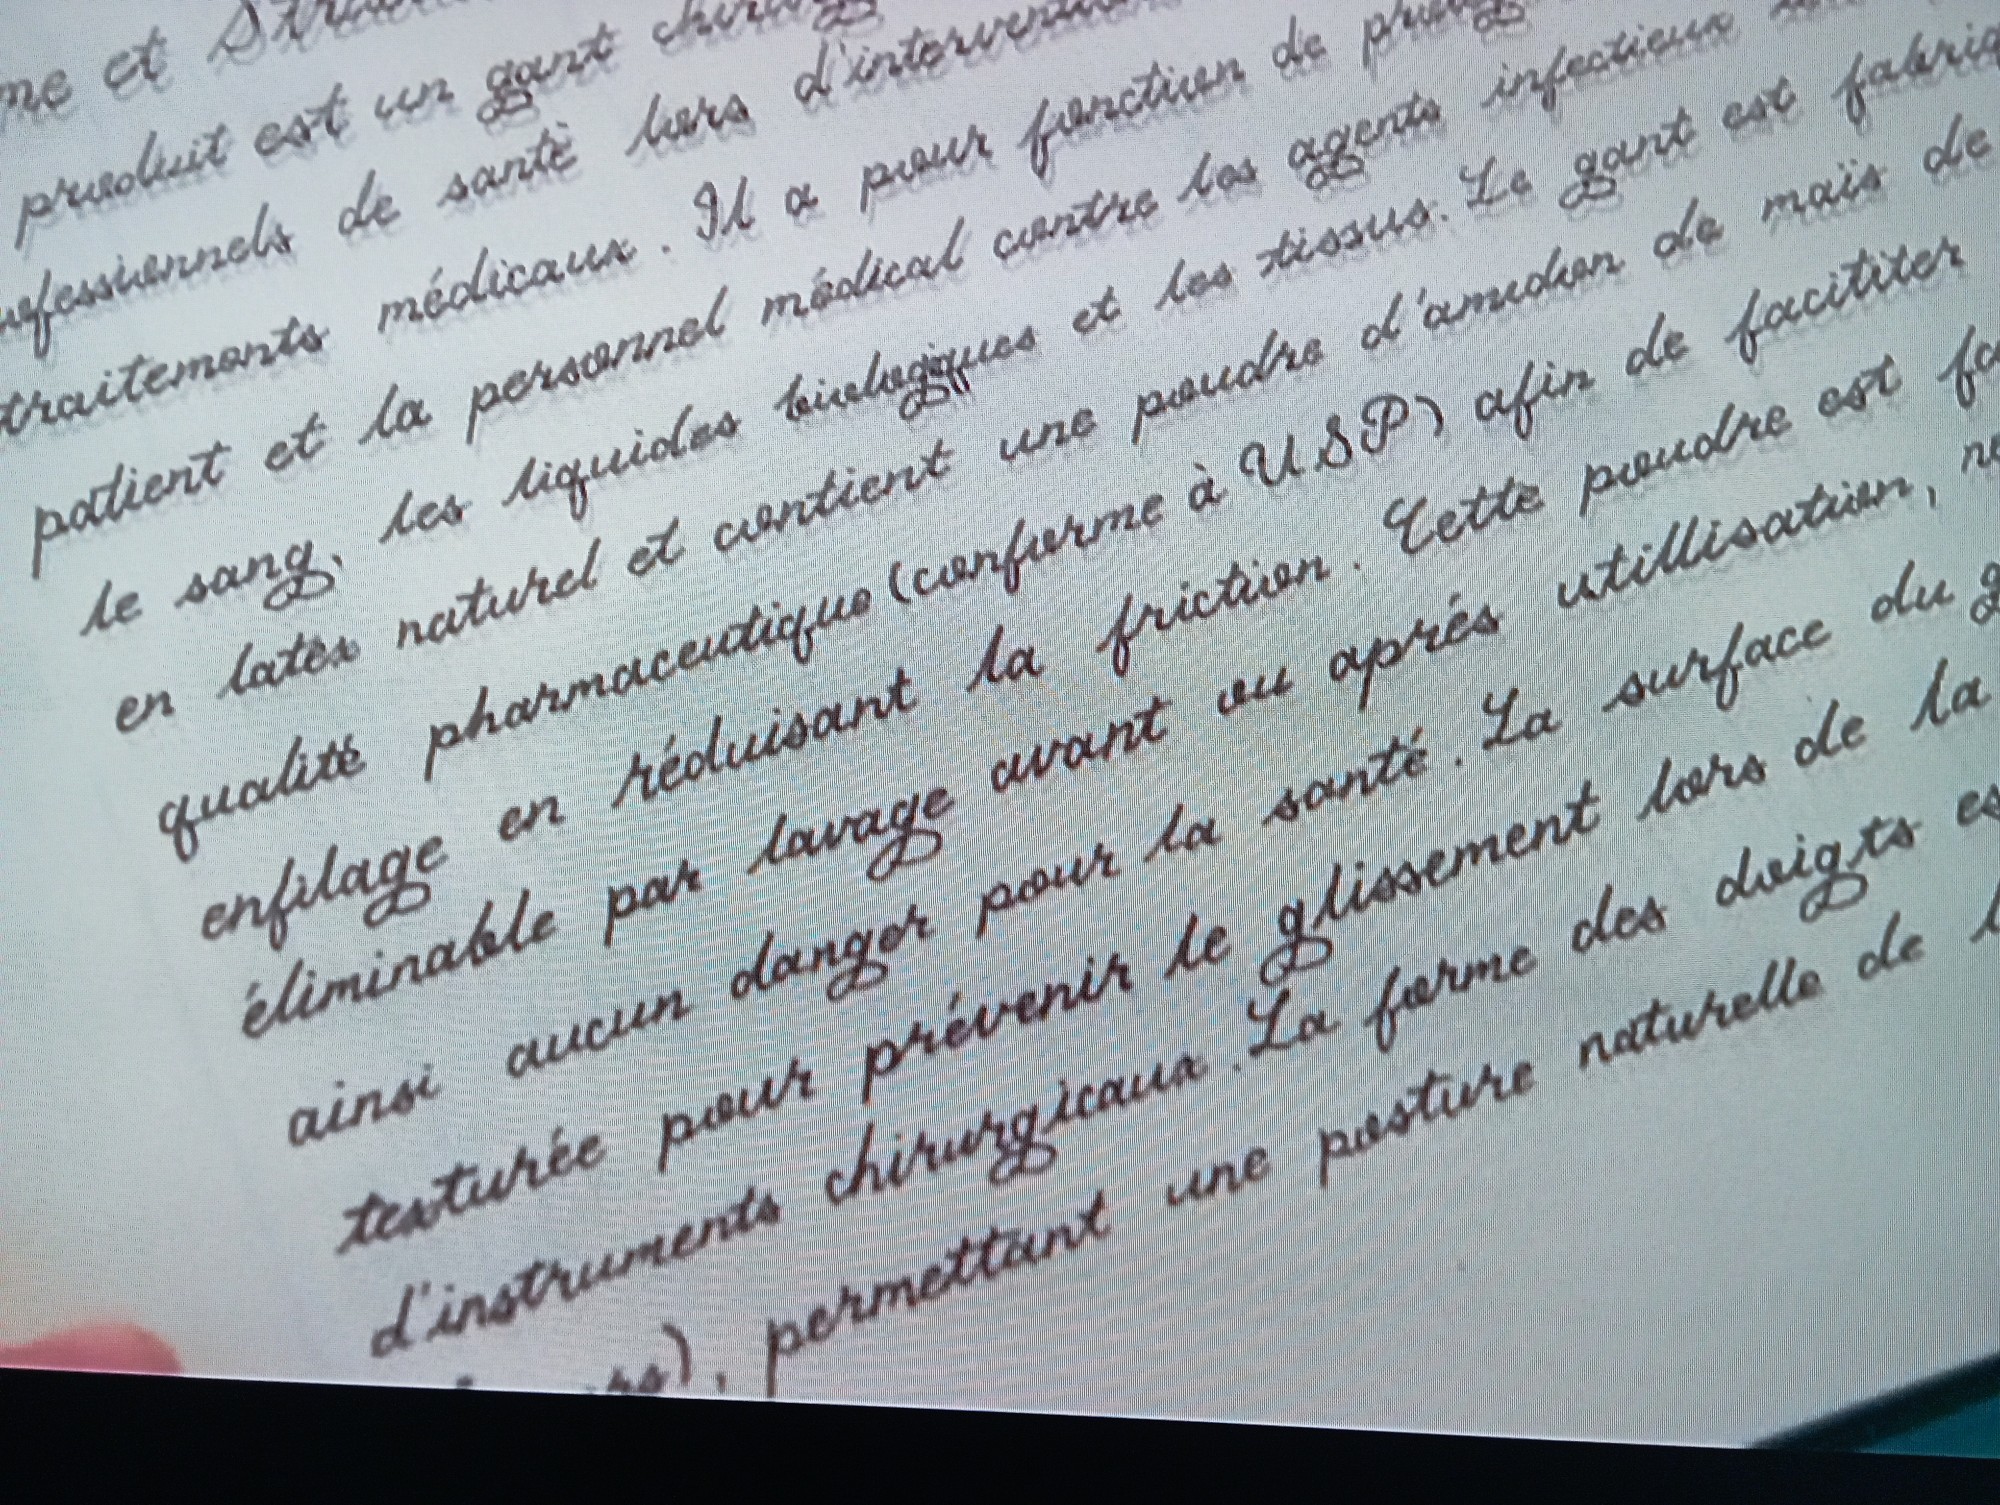 et
produit est un gant
de santé lors
traitements médicaux. Il a pour fonction de
patient et la personnel médical contre les agents infectieux
le sang, les liquides biologiques et les tissus. Le gant est
en latex naturel et contient une poudre d'amidon de maïs de
qualité pharmaceutique (conforme à USP) afin de facititer
enfilage en réduisant la friction. Cette poudre est
éliminable par lavage avant ou après utillisation,
ainsi aucun danger pour la santé. La surface du
texturée pour prévenir le glissement lors de la
d'instruments chirurgicaux. La forme des doigts
permettant une posture naturelle de